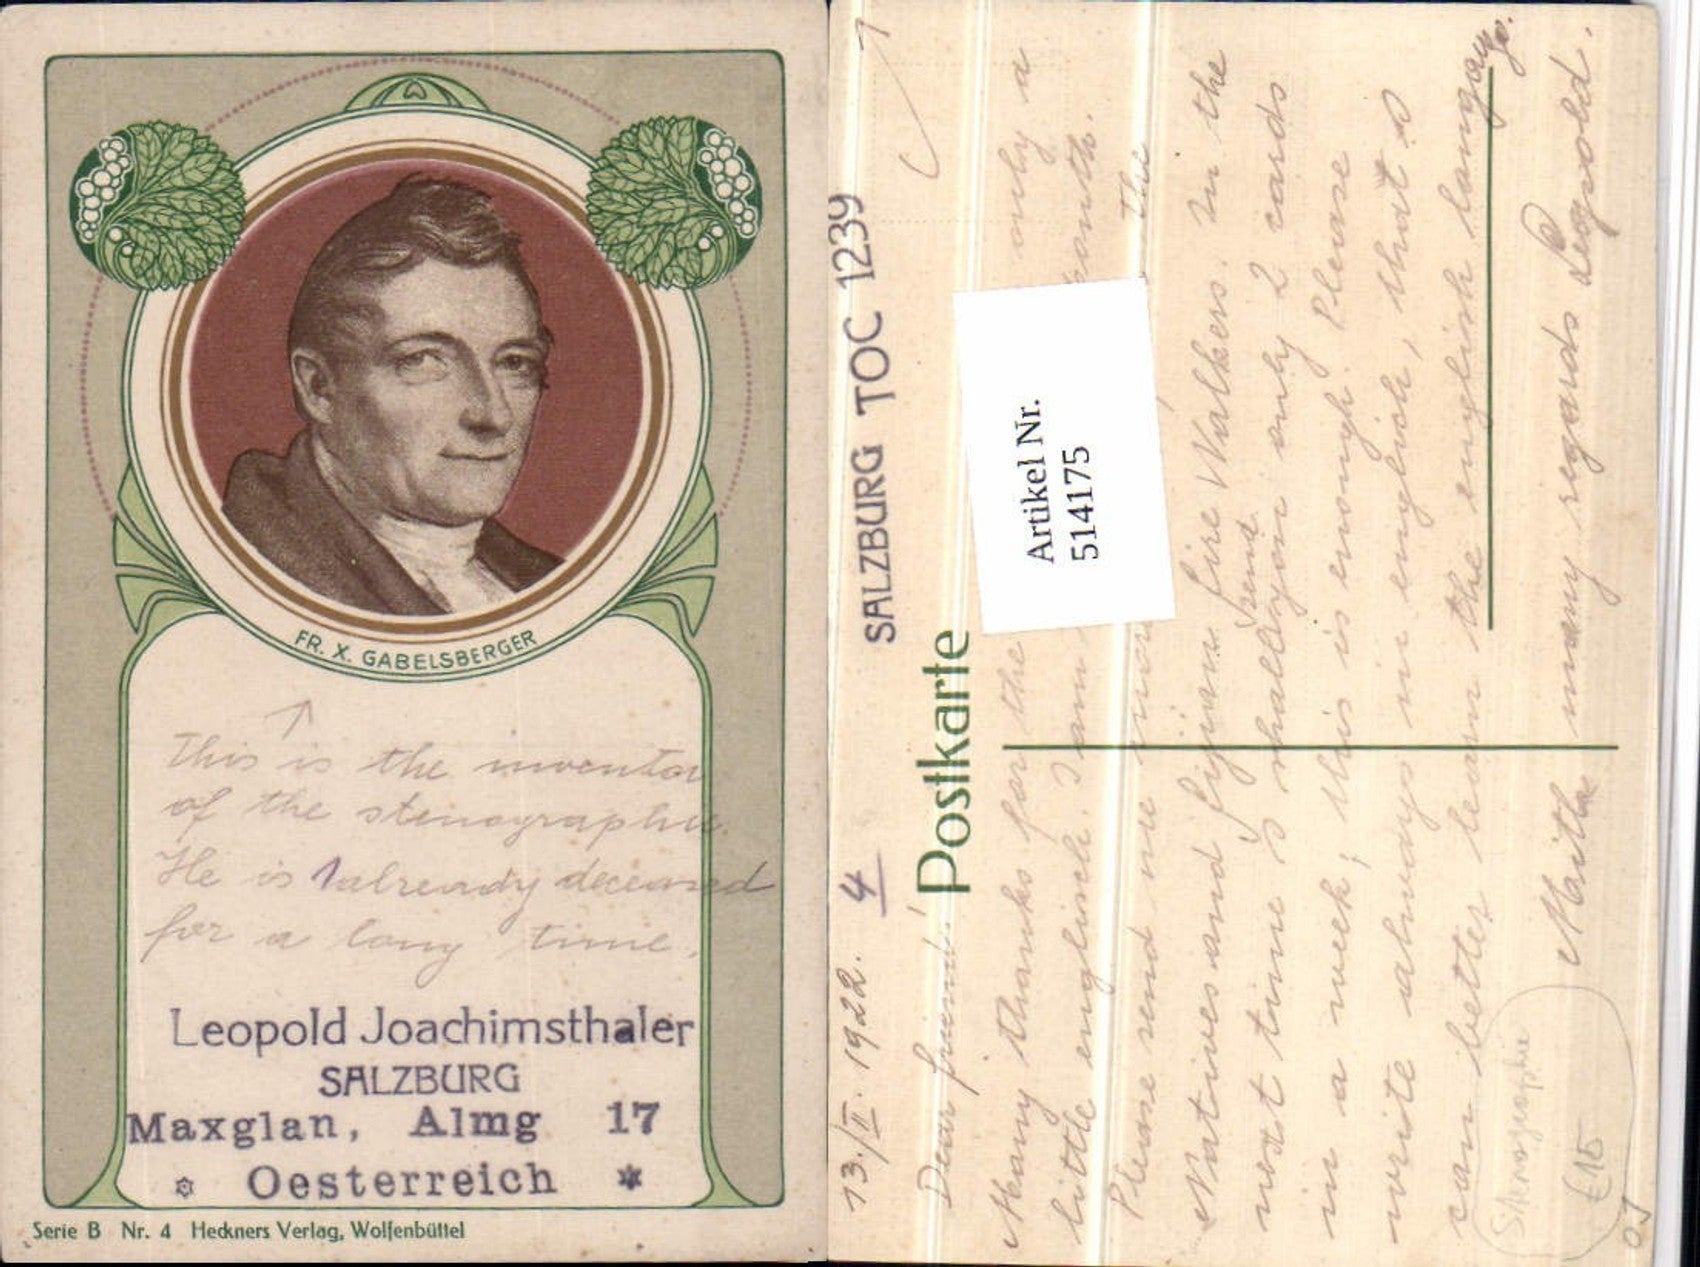 FR. X. GABELSBERGER
This is the inventor
of the stenographie.
He is already deceased
for a long time.
Leopold Joachimsthaler
SALZBURG
Maxglan, Almg 17
Oesterreich
Serie B Nr. 4 Heckners Verlag, Wolfenbüttel
SALZBURG TOC 1239
4
13./II. 1922.
Postkarte
Artikel Nr.
514175
Dear friend!
Many thanks for the only a
little englisch. I am month.
Please send me The
Natives and fijian fire Walkers. In the
next time I shall send only 2 cards
in a week, this is enough. Please
write always in englisch, that I
can better learn the english language.
With many regards Leopold.
Stenographie
€ 15
OJ